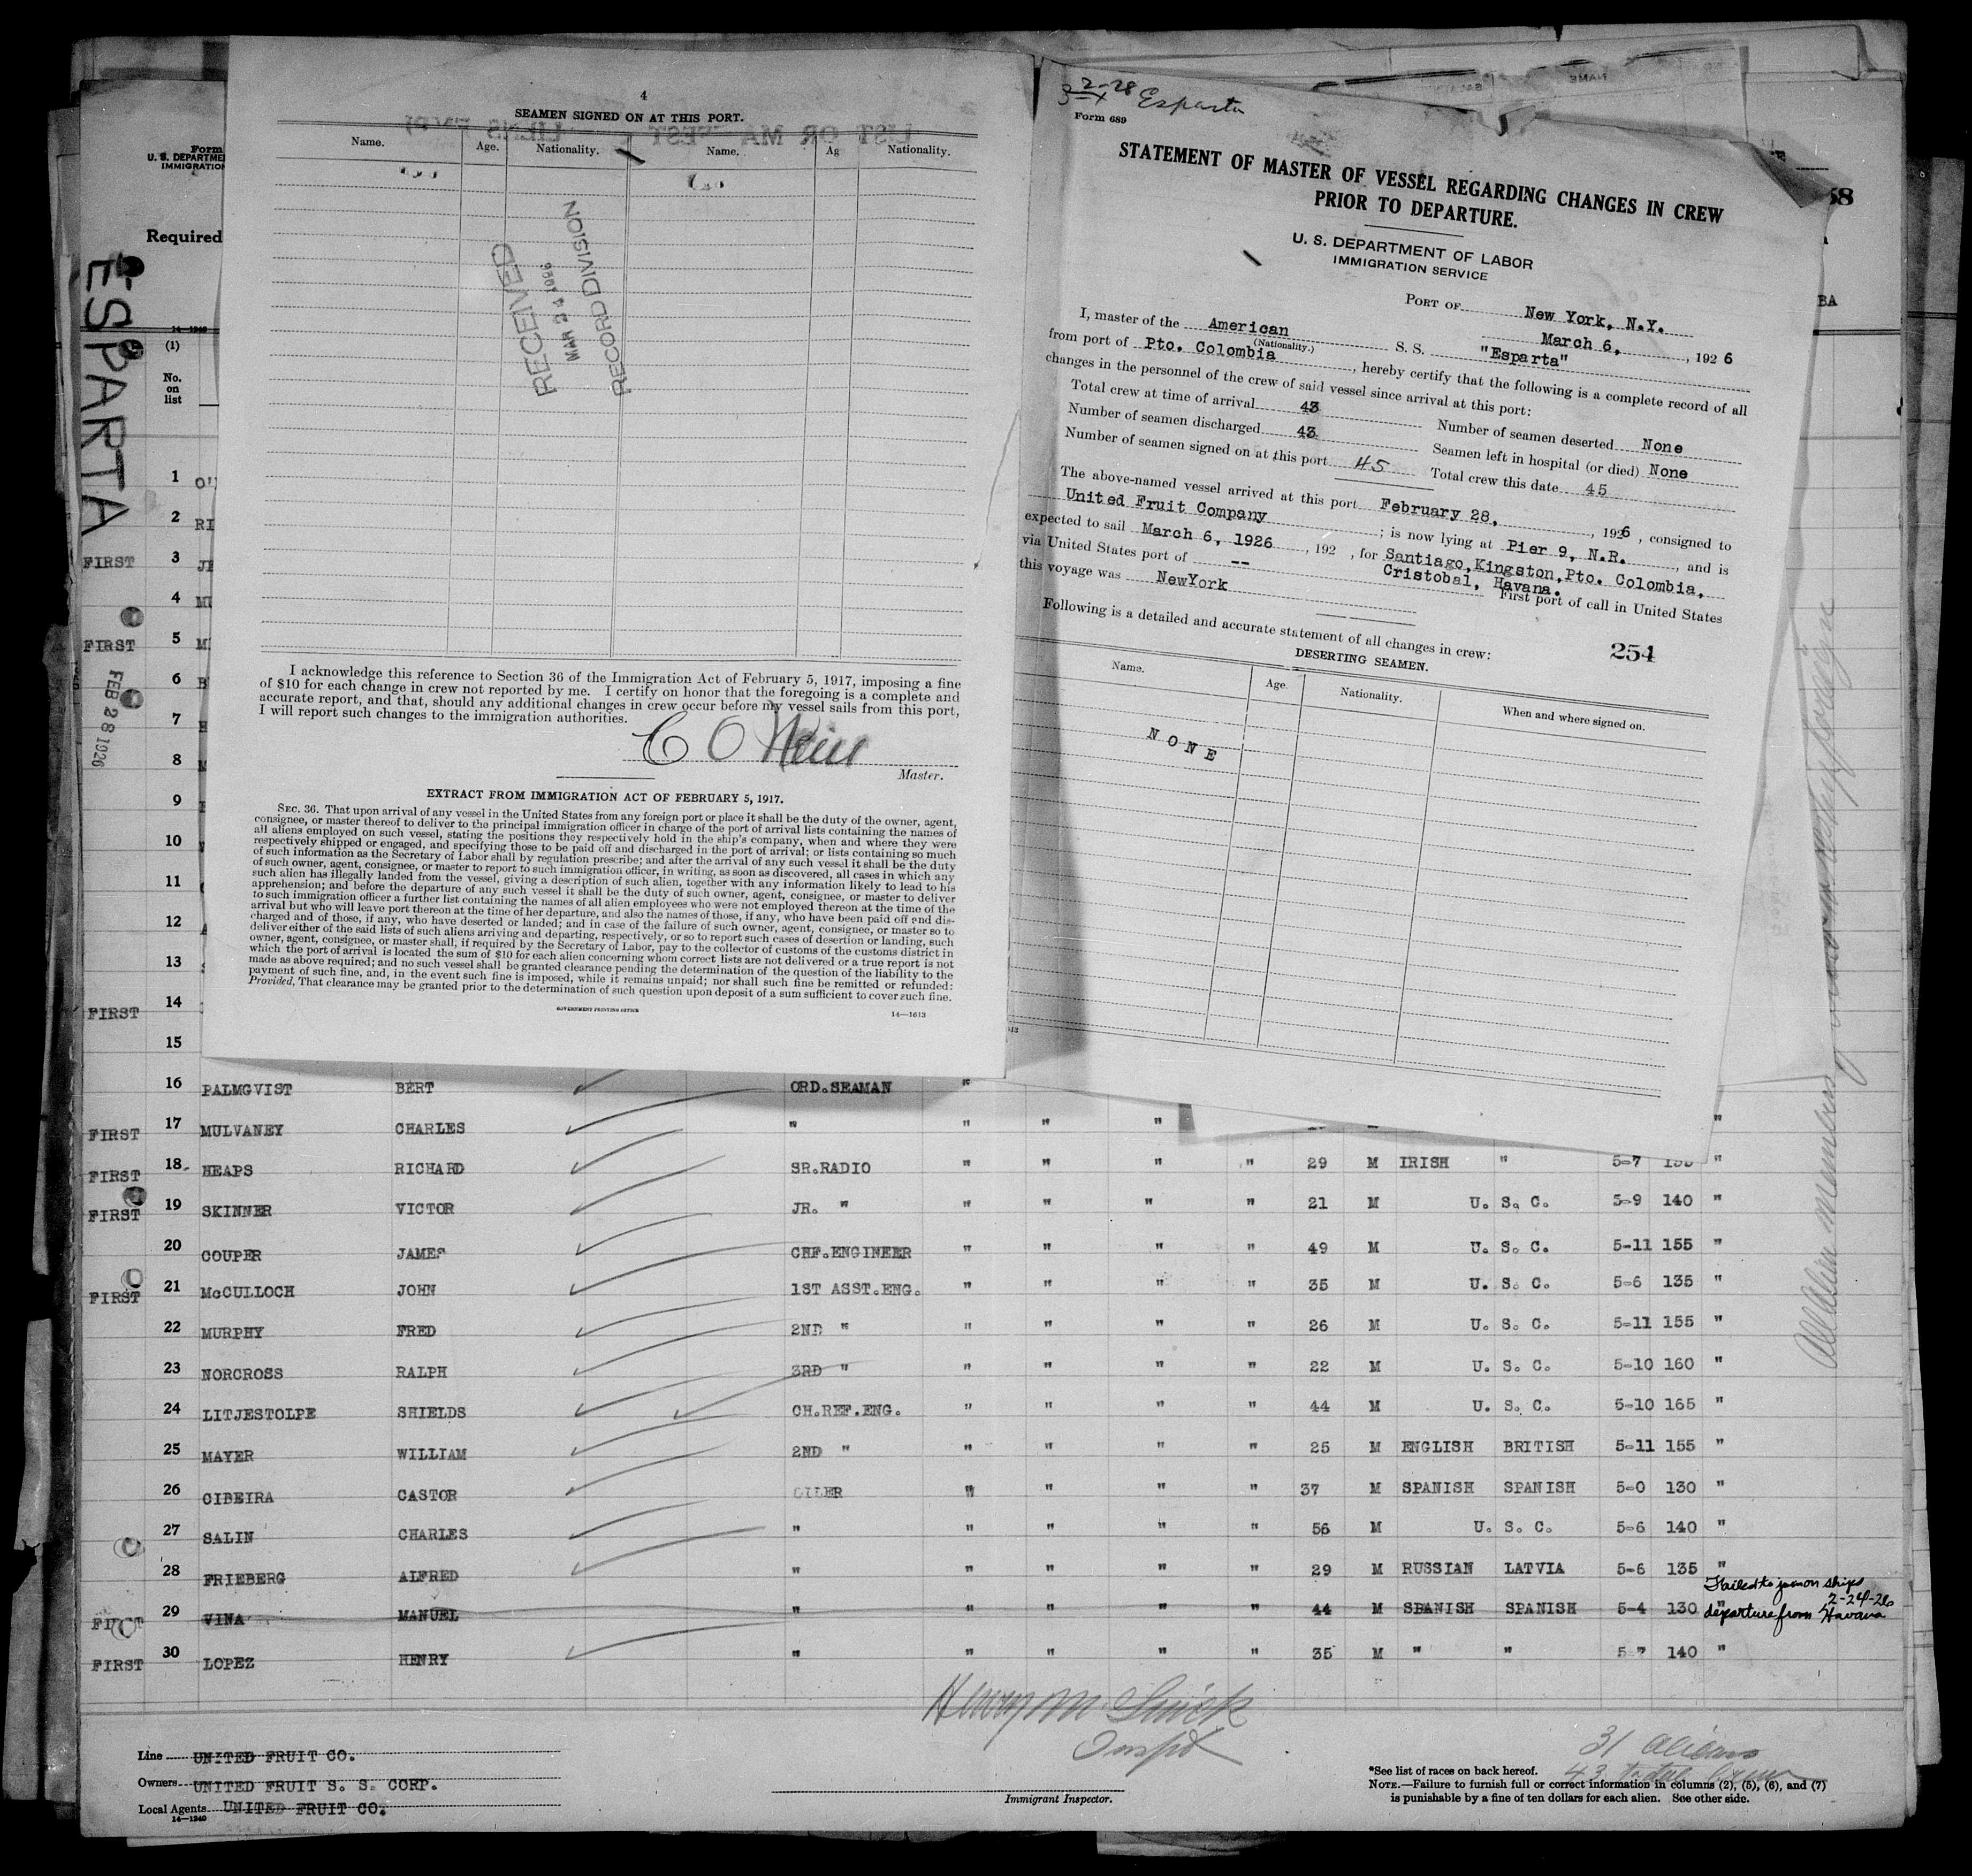 4
SEAMEN SIGNED ON AT THIS PORT.
Name. Age. Nationality. Name. Ag Nationality.
RECEIVED
MAR 24 1926
RECORD DIVISION
I acknowledge this reference to Section 36 of the Immigration Act of February 5, 1917, imposing a fine
of $10 for each change in crew not reported by me. I certify on honor that the foregoing is a complete and
accurate report, and that, should any additional changes in crew occur before my vessel sails from this port,
I will report such changes to the immigration authorities.
C O'Neill
Master.
EXTRACT FROM IMMIGRATION ACT OF FEBRUARY 5, 1917.
SEC. 36. That upon arrival of any vessel in the United States from any foreign port or place it shall be the duty of the owner, agent,
consignee, or master thereof to deliver to the principal immigration officer in charge of the port of arrival lists containing the names of
all aliens employed on such vessel, stating the positions they respectively hold in the ship's company, when and where they were
respectively shipped or engaged, and specifying those to be paid off and discharged in the port of arrival; or lists containing so much
of such information as the Secretary of Labor shall by regulation prescribe; and after the arrival of any such vessel it shall be the duty
of such owner, agent, consignee, or master to report to such immigration officer, in writing, as soon as discovered, all cases in which any
such alien has illegally landed from the vessel, giving a description of such alien, together with any information likely to lead to his
apprehension; and before the departure of any such vessel it shall be the duty of such owner, agent, consignee, or master to deliver
to such immigration officer a further list containing the names of all alien employees who were not employed thereon at the time of the
arrival but who will leave port thereon at the time of her departure, and also the names of those, if any, who have been paid off and dis-
charged and of those, if any, who have deserted or landed; and in case of the failure of such owner, agent, consignee, or master so to
deliver either of the said lists of such aliens arriving and departing, respectively, or so to report such cases of desertion or landing, such
owner, agent, consignee, or master shall, if required by the Secretary of Labor, pay to the collector of customs of the customs district in
which the port of arrival is located the sum of $10 for each alien concerning whom correct lists are not delivered or a true report is not
made as above required; and no such vessel shall be granted clearance pending the determination of the question of the liability to the
payment of such fine, and, in the event such fine is imposed, while it remains unpaid; nor shall such fine be remitted or refunded:
Provided, That clearance may be granted prior to the determination of such question upon deposit of a sum sufficient to cover such fine.
GOVERNMENT PRINTING OFFICE 14—1613
2-28 Esparta
Form 689
STATEMENT OF MASTER OF VESSEL REGARDING CHANGES IN CREW
PRIOR TO DEPARTURE.
U. S. DEPARTMENT OF LABOR
IMMIGRATION SERVICE
PORT OF New York, N.Y.
March 6, , 192 6
I, master of the American S. S. "Esparta"
(Nationality.)
from port of Pto. Colombia , hereby certify that the following is a complete record of all
changes in the personnel of the crew of said vessel since arrival at this port:
Total crew at time of arrival 43 Number of seamen deserted None
Number of seamen discharged 43 Seamen left in hospital (or died) None
Number of seamen signed on at this port 45 Total crew this date 45
The above-named vessel arrived at this port February 28, , 1926 , consigned to
United Fruit Company ; is now lying at Pier 9, N.R. , and is
expected to sail March 6, 1926 , 192 , for Santiago,Kingston,Pto. Colombia,
Cristobal, Havana.
via United States port of -- First port of call in United States
this voyage was NewYork
Following is a detailed and accurate statement of all changes in crew:
254
DESERTING SEAMEN.
Name. Age. Nationality. When and where signed on.
NONE
Form
U. S. DEPARTME
IMMIGRATION
Required
58
BA
ESPARTA
14—1240
(1)
No.
on
list
FEB 28 1926
1 O'
2 RI
FIRST 3 JE
4
FIRST 5 M
6 B
7 H
8 M
9
10
11
12
13
FIRST 14
15
16 PALMGVIST BERT ORD.SEAMAN "
FIRST 17 MULVANEY CHARLES " " " " "
FIRST 18 HEAPS RICHARD SR.RADIO " " " " 29 M IRISH " 5-7 "
FIRST 19 SKINNER VICTOR JR. " " " " " 21 M U. S. C. 5-9 140 "
20 COUPER JAMES CHF.ENGINEER " " " " 49 M U. S. C. 5-11 155 "
FIRST 21 McCULLOCH JOHN 1ST ASST.ENG. " " " " 35 M U. S. C. 5-6 135 "
22 MURPHY FRED 2ND " " " " " 26 M U. S. C. 5-11 155 "
23 NORCROSS RALPH 3RD " " " " " 22 M U. S. C. 5-10 160 "
24 LITJESTOLPE SHIELDS CH.REF.ENG. " " " " 44 M U. S. C. 5-10 165 "
25 MAYER WILLIAM 2ND " " " " " 25 M ENGLISH BRITISH 5-11 155 "
26 CIBEIRA CASTOR OILER " " " " 37 M SPANISH SPANISH 5-0 130 "
27 SALIN CHARLES " " " " " 56 M U. S. C. 5-6 140 "
28 FRIEBERG ALFRED " " " " " 29 M RUSSIAN LATVIA 5-6 135 "
29 VINA MANUEL " " " " " 44 M SPANISH SPANISH 5-4 130 "
Failed to join on ships
2-24-26
departure from Havana
FIRST 30 LOPEZ HENRY " " " " " 35 M " " 5-7 140 "
Line UNITED FRUIT CO.
Owners UNITED FRUIT S. S. CORP.
Local Agents UNITED FRUIT CO.
14—1240
Immigrant Inspector.
31 aliens
43 total
*See list of races on back hereof.
NOTE.—Failure to furnish full or correct information in columns (2), (5), (6), and (7)
is punishable by a fine of ten dollars for each alien. See other side.